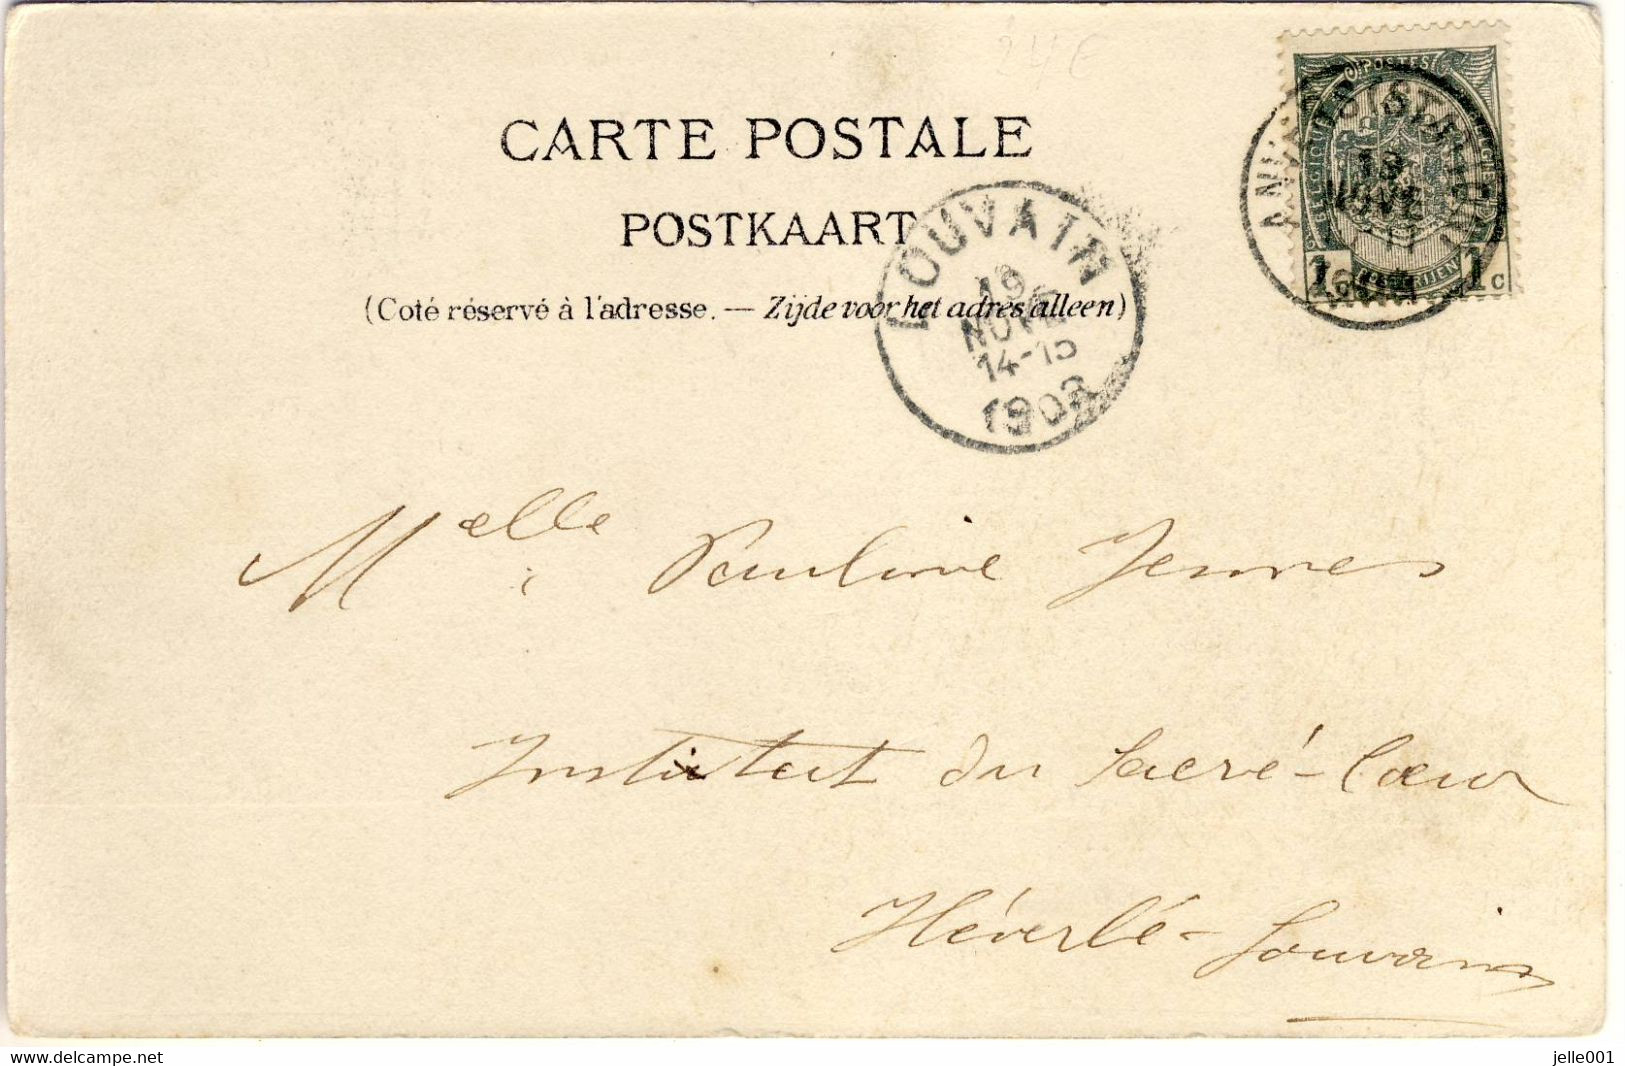 24€
CARTE POSTALE
POSTKAART
(Coté réservé à l'adresse. — Zijde voor het adres alleen)
LOUVAIN
19
NOVE
14-15
1903
POSTES
BELGIQUE BELGIË
ANVERS
19
NOVE
1 C POSTERIJEN 1 C
Melle Pauline Jennes
Institut du Sacré-Cœur
Héverlé-Louvain
www.delcampe.net
jelle001